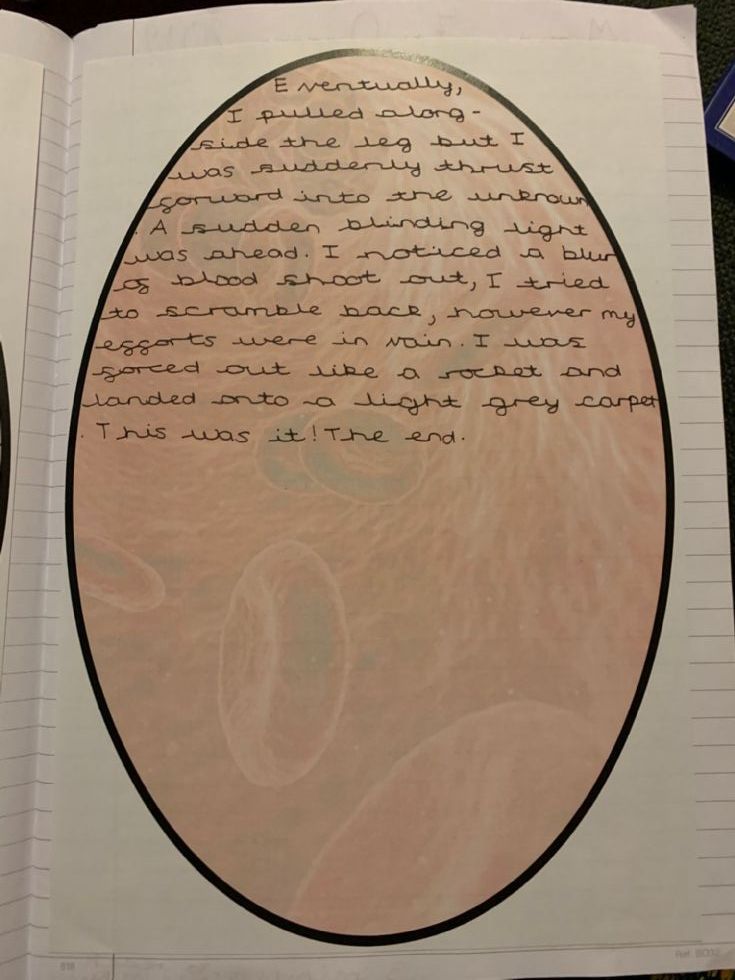 Eventually,
I pulled along-
side the leg but I
was suddenly thrust
forward into the unknown
. A sudden blinding light
was ahead. I noticed a blur
of blood shoot out, I tried
to scramble back, however my
efforts were in vain. I was
forced out like a rocket and
landed onto a light grey carpet
. This was it! The end.
818